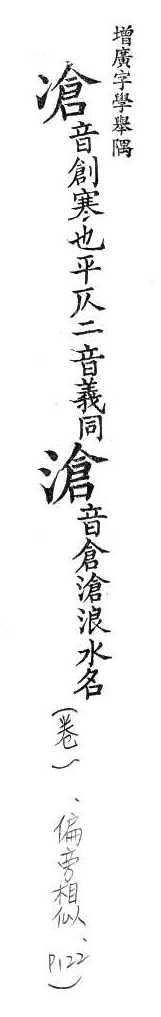 增廣字學舉隅
凔音創寒也平仄二音義同滄音倉滄浪水名(卷一、偏旁相似、P122)